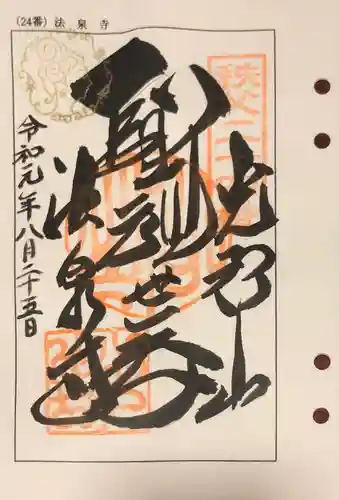 (24番) 法泉寺
秩父二十四番
光智山
聖観世音
法泉寺
令和元年八月二十五日